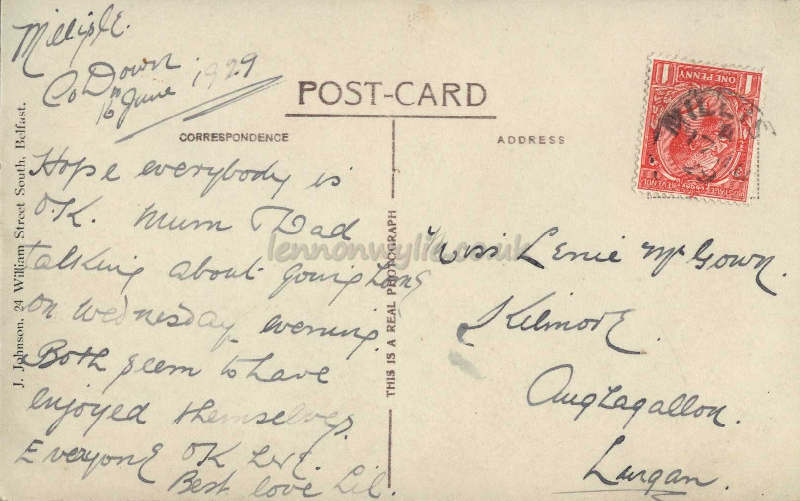 Millisle.
Co Down.
16th June 1929
POST-CARD
CORRESPONDENCE
Hope everybody is
O.K. Mum & Dad
talking about going home
on Wednesday evening.
Both seem to have
enjoyed themselves.
Everyone OK here.
Best love Lil.
ADDRESS
Miss Lenie McGown.
Kilmore.
Aughagallon.
Lurgan.
J. Johnson, 24 William Street South, Belfast.
THIS IS A REAL PHOTOGRAPH
ONE PENNY
POSTAGE REVENUE
lennonwylie.co.uk